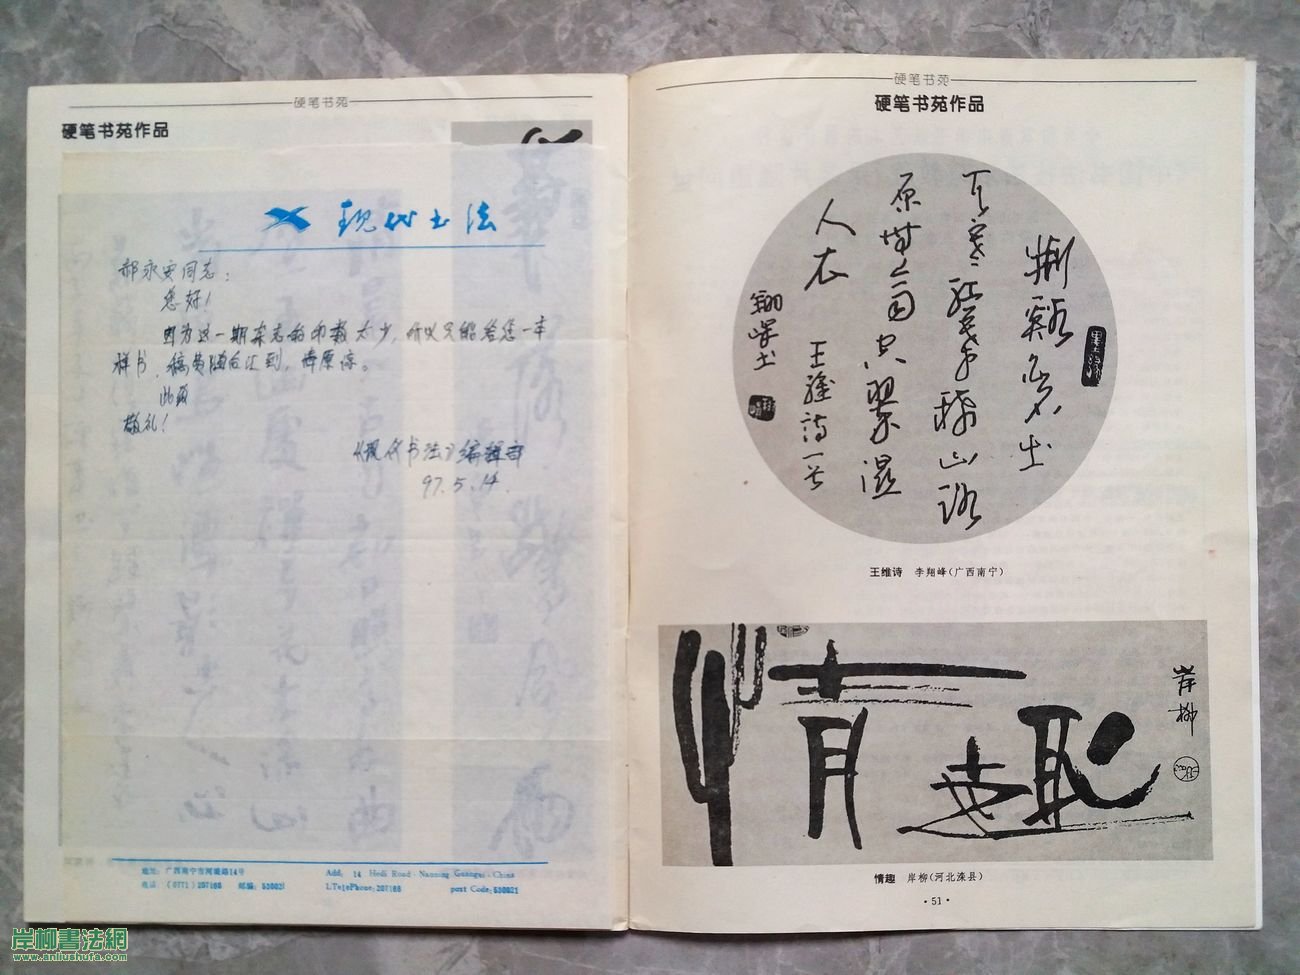 硬笔书苑
硬笔书苑作品
现代书法
郝永安同志：
您好！
因为这一期杂志的印数太少，所以只能给您一本
样书，稿费随后汇到，请原谅。
此致
敬礼！
《现代书法》编辑部
97.5.14.
地址：广西南宁市河堤路14号
电话：（0771）207168 邮编：530021
Add: 14 Hedi Road·Nanning Guangxi·China
LTelePhone:207168 post Code:530021
硬笔书苑
硬笔书苑作品
荆溪白石出
天寒红叶稀山路
原无雨空翠湿
人衣 王维诗一首
翔峰书
王维诗 李翔峰（广西南宁）
情趣
岸柳
情趣 岸柳（河北滦县）
·51·
岸柳書法網
www.anliushufa.com